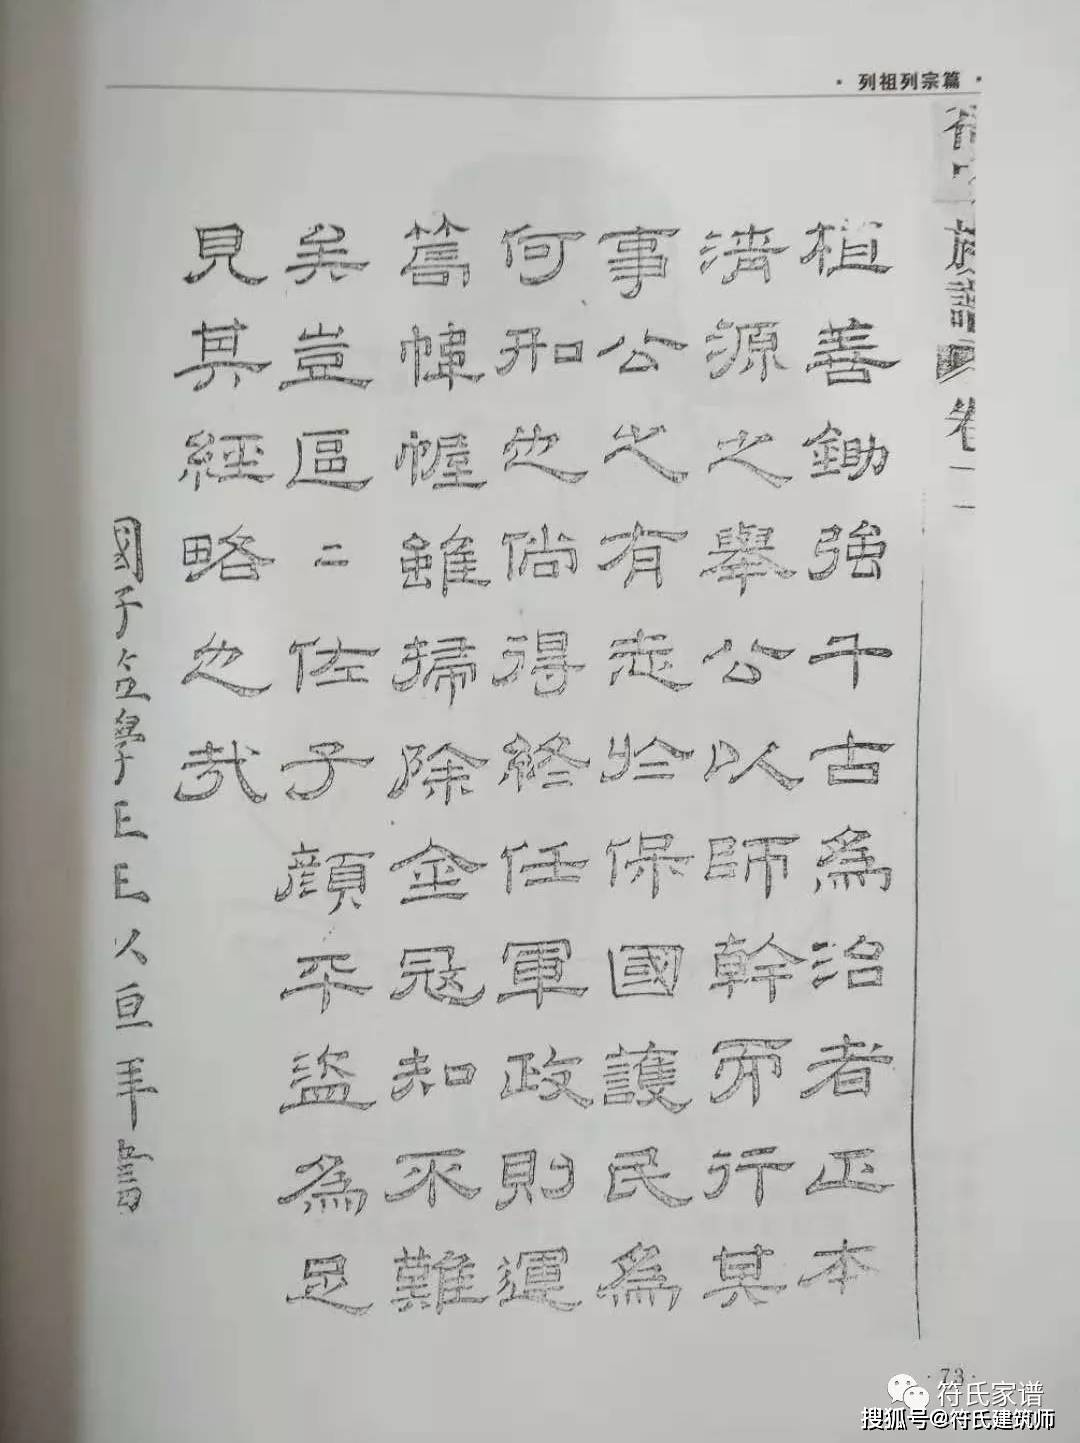 · 列祖列宗篇 ·
符氏族譜 卷一
植善鋤強千古為治者正本
清源之舉公以師幹而行其
事公之有志於保國護民為
何如也尚得終任軍政則運
籌帷幄雖掃除金冠知不難
矣豈區二佐子顏平盜為足
見其經略之哉
書
·73·
符氏家谱
搜狐号@符氏建筑师